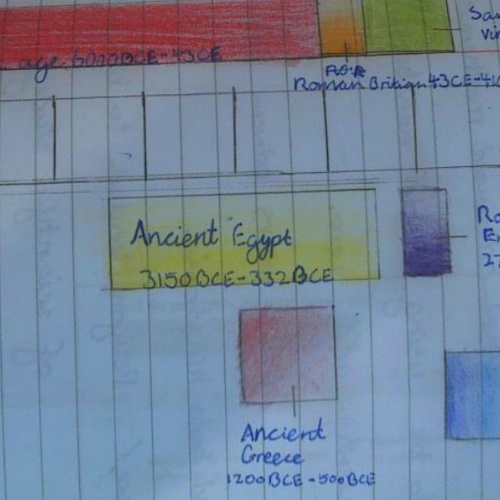 age 6000BCE-43CE
Sax
Vi
Roman Britian 43CE-41
Ancient Egypt
3150BCE-332BCE
Ro
E
27
Ancient
Greece
1200BCE-500BCE